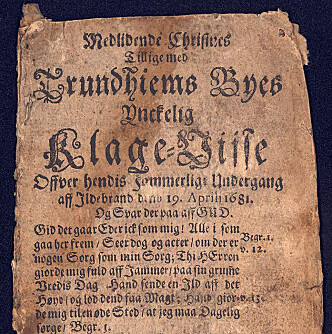 Medlidende Christnes
Tillige med
Trundhiems Byes
Ynckelig
Klage-Viise
Offver hendis Jommerligt Undergang
aff Ildebrand denb 19. April 1681.
Og Svar der paa aff GUD.
Gid det gaar Eder ick som mig! Alle i som
gaa her frem / Seer dog og acter / om der er
nogen Sorg som min Sorg; Thi HErren
giorde mig fuld aff Jammer / paa sin grumme
Vredis Dag. Hand sende en Ild aff det
Høye / og lod dend faa Magt; Hand gior-
de mig til en øde Sted / at jeg maa Dagelig
sørge / Begr. 1.
Begr. 1.
v. 12.
v. 13.